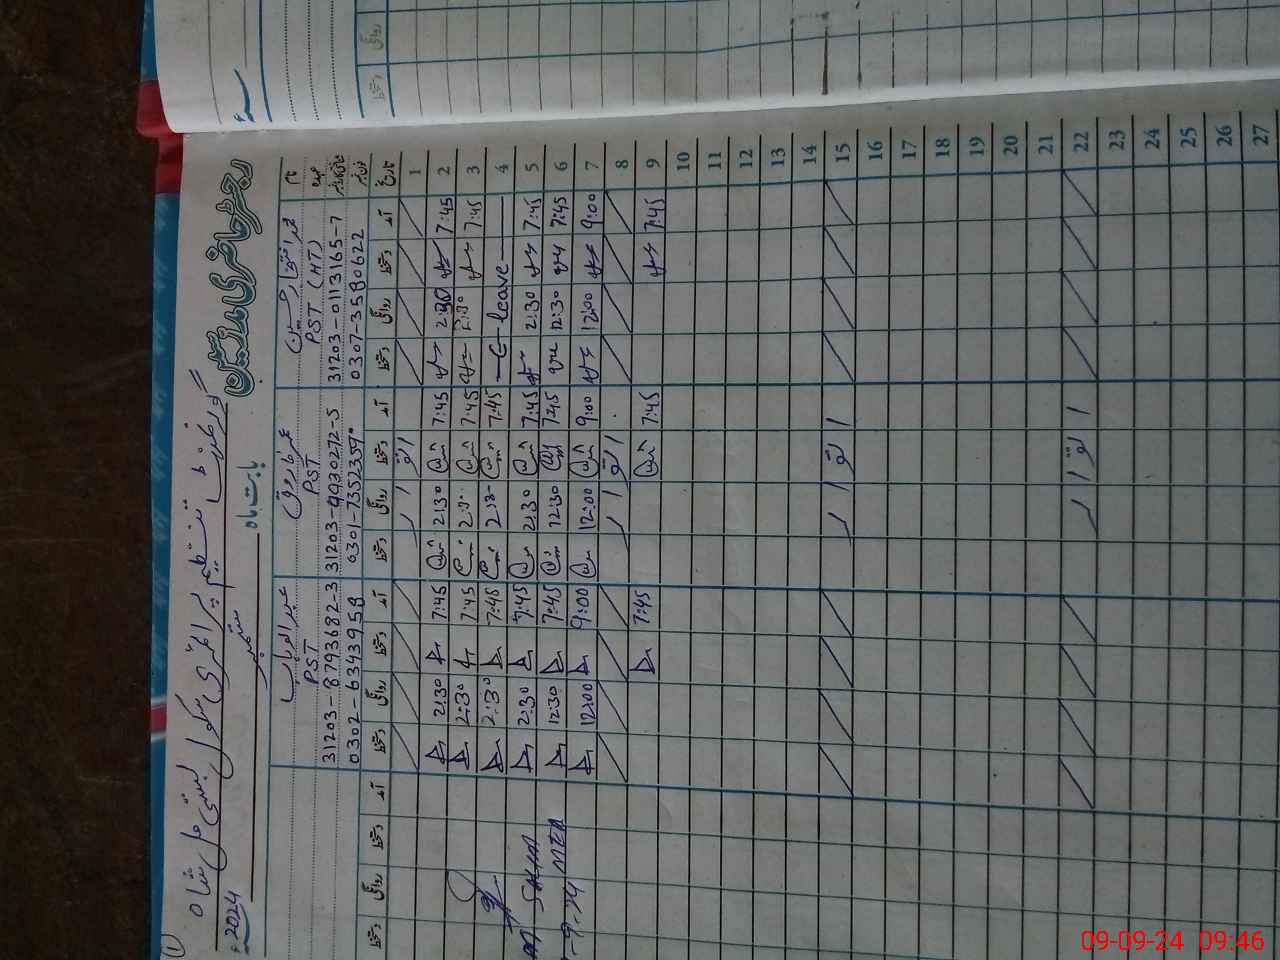 رجسٹر حاضری مدرسین
گورنمنٹ تنظیم پرائمری سکول بستی ملن شاہ
بابت ماہ ستمبر 2024ء
نام محمد افتخار حسین عمر فاروق عبدالوہاب
عہدہ PST (HT) PST PST
31203-0113165-7 31203-9930272-5 31203-8793682-3
0307-3580622 0301-7352359 0302-6343959
تاریخ آمد دستخط روانگی دستخط آمد دستخط روانگی دستخط آمد دستخط روانگی دستخط آمد دستخط روانگی دستخط
1 اتوار
2 7:45 2:30 7:45 2:30 7:45 2:30
3 7:45 2:30 7:45 2:30 7:45 2:30
4 leave 7:45 2:30 7:45 2:30
5 7:45 2:30 7:45 2:30 7:45 2:30
6 7:45 12:30 7:45 12:30 7:45 12:30
7 9:00 12:00 9:00 12:00 9:00 12:00
8 اتوار
9 7:45 7:45 7:45
10
11
12
13
14
15 اتوار
16
17
18
19
20
21
22 اتوار
23
24
25
26
27
09-09-24 09:46